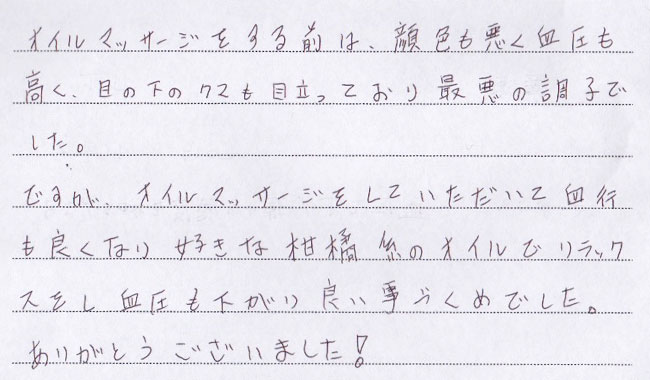 オイルマッサージをする前は、顔色も悪く血圧も
高く、目の下のクスも目立っており最悪の調子で
した。
ですが、オイルマッサージをしていただいて血行
も良くなり好きな柑橘系のオイルでリラック
スをし血圧も下がり良い事づくめでした。
ありがとうございました!